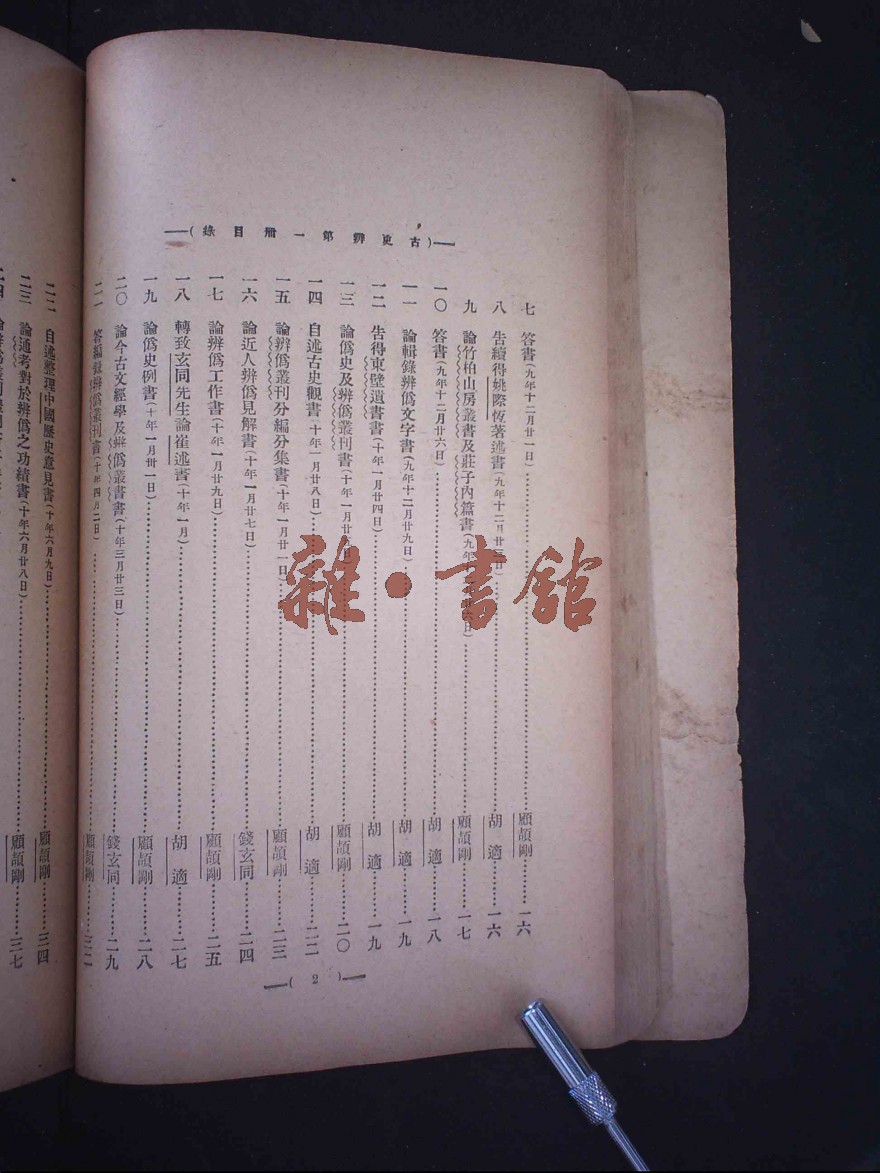 (古史辨第一冊目錄)
七 答書(九年十二月廿一日) 顧頡剛 一六
八 告續得姚際恆著述書(九年十二月廿 日) 胡適 一六
九 論竹柏山房叢書及莊子內篇書(九年 六日) 顧頡剛 一七
一〇 答書(九年十二月廿六日) 胡適 一八
一一 論輯錄辨僞文字書(九年十二月廿九日) 胡適 一九
一二 告得東壁遺書書(十年一月廿四日) 胡適 一九
一三 論僞史及辨僞叢刊書(十年一月廿 日) 顧頡剛 二〇
一四 自述古史觀書(十年一月廿八日) 胡適 二二
一五 論辨僞叢刊分編分集書(十年一月廿一日) 顧頡剛 二三
一六 論近人辨僞見解書(十年一月廿七日) 錢玄同 二四
一七 論辨僞工作書(十年一月廿九日) 顧頡剛 二五
一八 轉致玄同先生論崔述書(十年一月) 胡適 二七
一九 論僞史例書(十年一月卅一日) 顧頡剛 二八
二〇 論今古文經學及辨僞叢書書(十年三月廿三日) 錢玄同 二九
二一 答編錄辨僞叢刊書(十年四月二日) 顧頡剛 三二
(2)
二二 自述整理中國歷史意見書(十年六月九日) 顧頡剛 三四
二三 論通考對於辨僞之功績書(十年六月廿八日) 顧頡剛 三七
二四
雜·書館